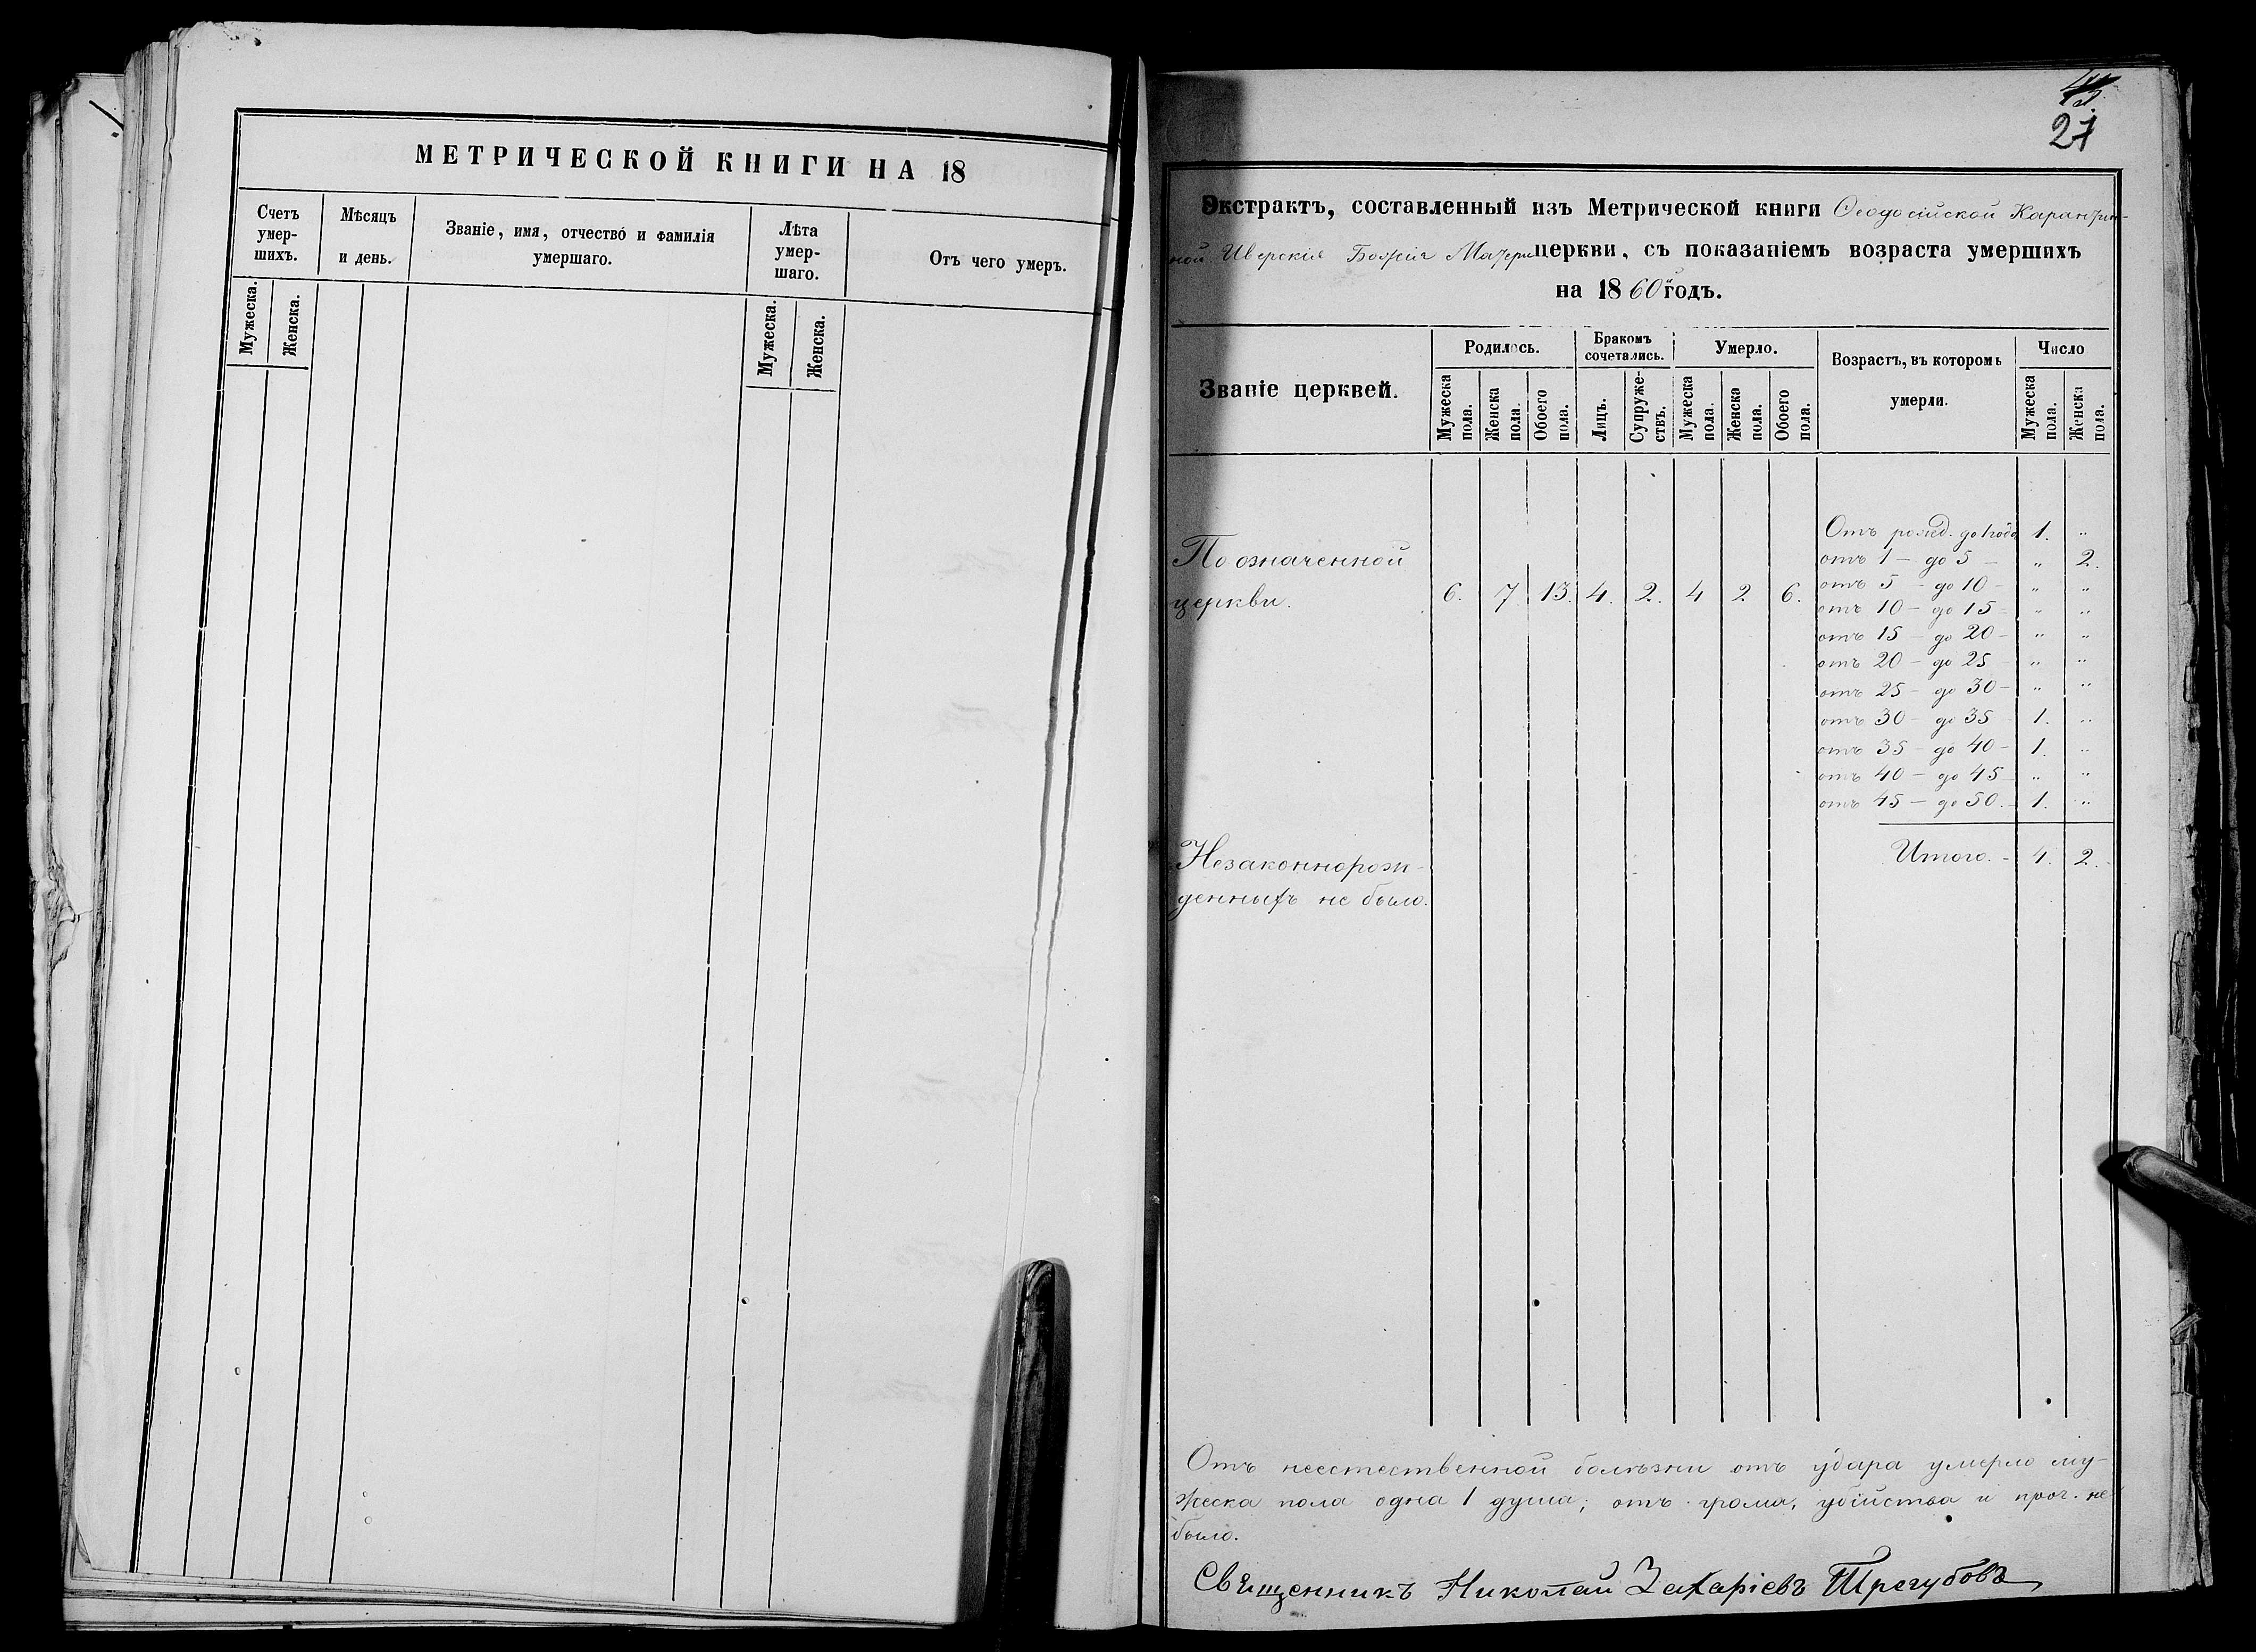 МЕТРИЧЕСКОЙ КНИГИ НА 18
Счетъ умер-шихъ.
Мѣсяцъ и день.
Званіе, имя, отчество и фамилія умершаго.
Лѣта умер-шаго.
Отъ чего умеръ.
Мужеска. Женска.
Мужеска. Женска.
27
Экстрактъ, составленный изъ Метрической книги Ѳеодосійской Карантин-
ной Иверскія Божія Матери церкви, съ показаніемъ возраста умершихъ
на 1860й годъ.
Званіе церквей.
Родилось.
Бракомъ сочетались.
Умерло.
Возрастъ, въ которомъ умерли.
Число
Мужеска пола. Женска пола. Обоего пола. Лицъ. Супруже-ствъ. Мужеска пола. Женска пола. Обоего пола. Мужеска пола. Женска пола.
По означенной
церкви. 6. 7 13. 4. 2. 4 2 6.
Отъ рожд. до 1 года 1. „
отъ 1 – до 5 – „ 2.
отъ 5 – до 10 – „ „
отъ 10 – до 15 – „ „
отъ 15 – до 20 – „ „
отъ 20 – до 25 – „ „
отъ 25 – до 30 – „ „
отъ 30 – до 35 – 1. „
отъ 35 – до 40 – 1. „
отъ 40 – до 45 – „ „
отъ 45 – до 50. – 1. „
Итого. – 4. 2.
Незаконнорож-
денныхъ не было.
Отъ неестественной болѣзни отъ удара умерло му-
жеска пола одна 1 душа; отъ грома, убійства и проч. не
было.
Священникъ Николай Захаріевъ Трегубовъ